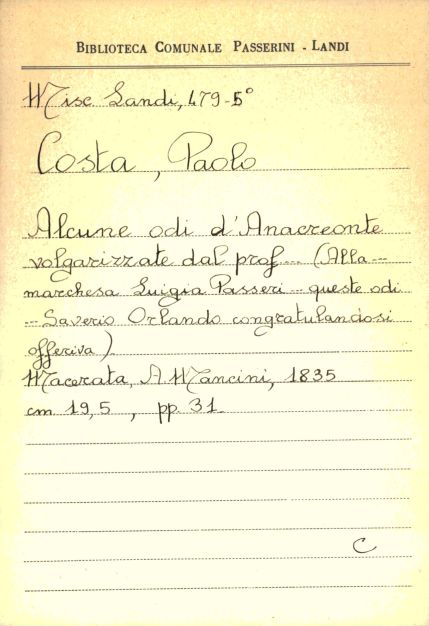 BIBLIOTECA COMUNALE PASSERINI - LANDI
Misc Landi, 479-5°
Costa, Paolo
Alcune odi d'Anacreonte
volgarizzate dal prof... (Alla
marchesa Luigia Passeri... queste odi
... Saverio Orlando congratulandosi
offeriva)
Macerata, A. Mancini, 1835
cm 19,5, pp. 31.
C